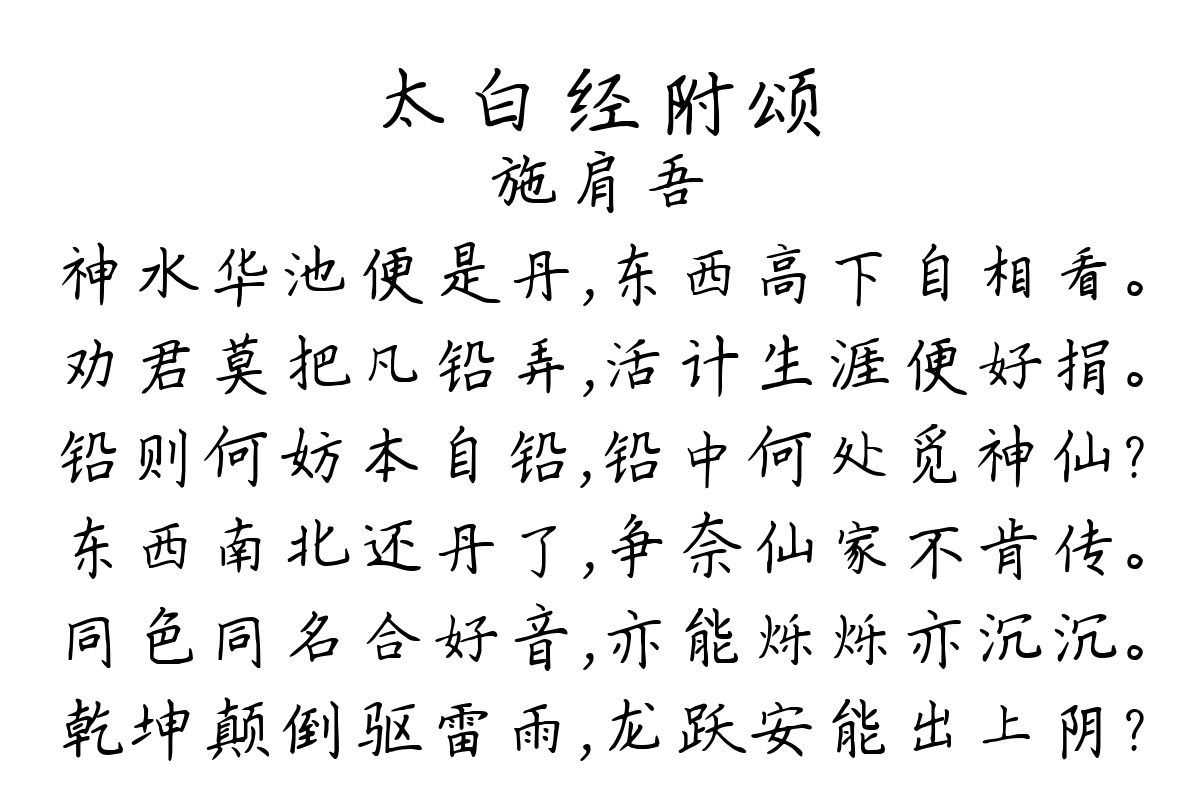 太白经附颂
施肩吾
神水华池便是丹,东西高下自相看。
劝君莫把凡铅弄,活计生涯便好捐。
铅则何妨本自铅,铅中何处觅神仙?
东西南北还丹了,争奈仙家不肯传。
同色同名合好音,亦能烁烁亦沉沉。
乾坤颠倒驱雷雨,龙跃安能出上阴?